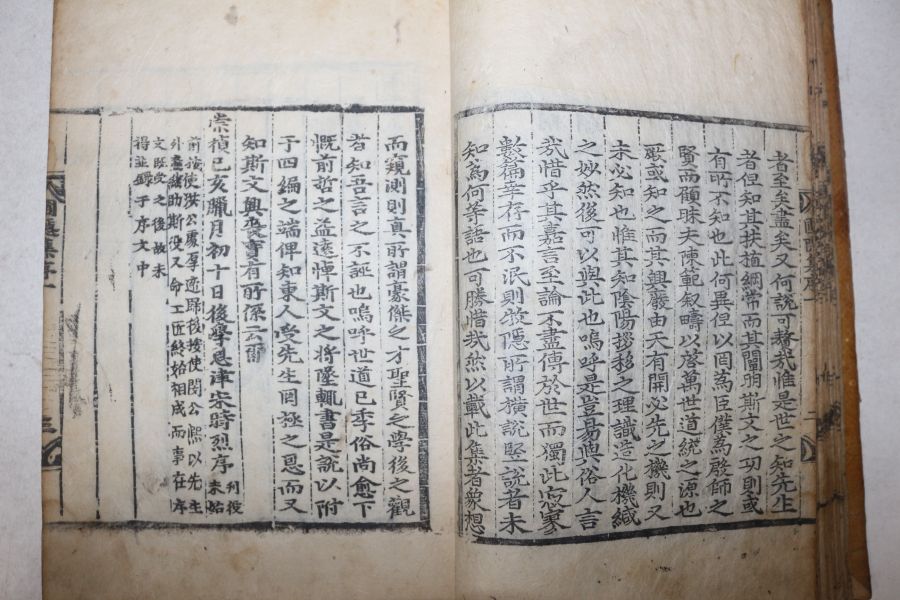 者至矣盡矣又何說可贅哉惟是世之知先生
者但知其扶植綱常而其闡明斯文之功則或
有所不知也此何異但以罔爲臣僕爲殷師之
賢而顧昧夫陳範叙疇以啓萬世道統之源也
或知之而其興由天有開必先之機則又
未必知也惟其知陰陽推移之理識造化機緘
之妙然後可以與此也嗚呼是豈易與俗人言
哉惜乎其嘉言至論不盡傳於世而獨此寂寥
數篇幸存而不泯則牧隱所謂橫說竪說者未
知為何等語也可勝惜哉然以載此集者象想
而窺測則真所謂豪傑之才聖賢之學後之觀
者知吾言之不誣也嗚呼世道已季俗尚愈下
慨前哲之益遠悼斯文之將墜輒書是說以附
于四編之端俾知東人受先生罔極之恩而又
知斯文興喪實有所係云爾
崇禎己亥臘月初十日後學恩津宋時烈序 刊役
未始
前按使洪公處厚遞歸後按使閔公熙以先生
外裔繼助斯役又命工匠終始相成而事在序
文旣受之後故未
得並錄于序文中